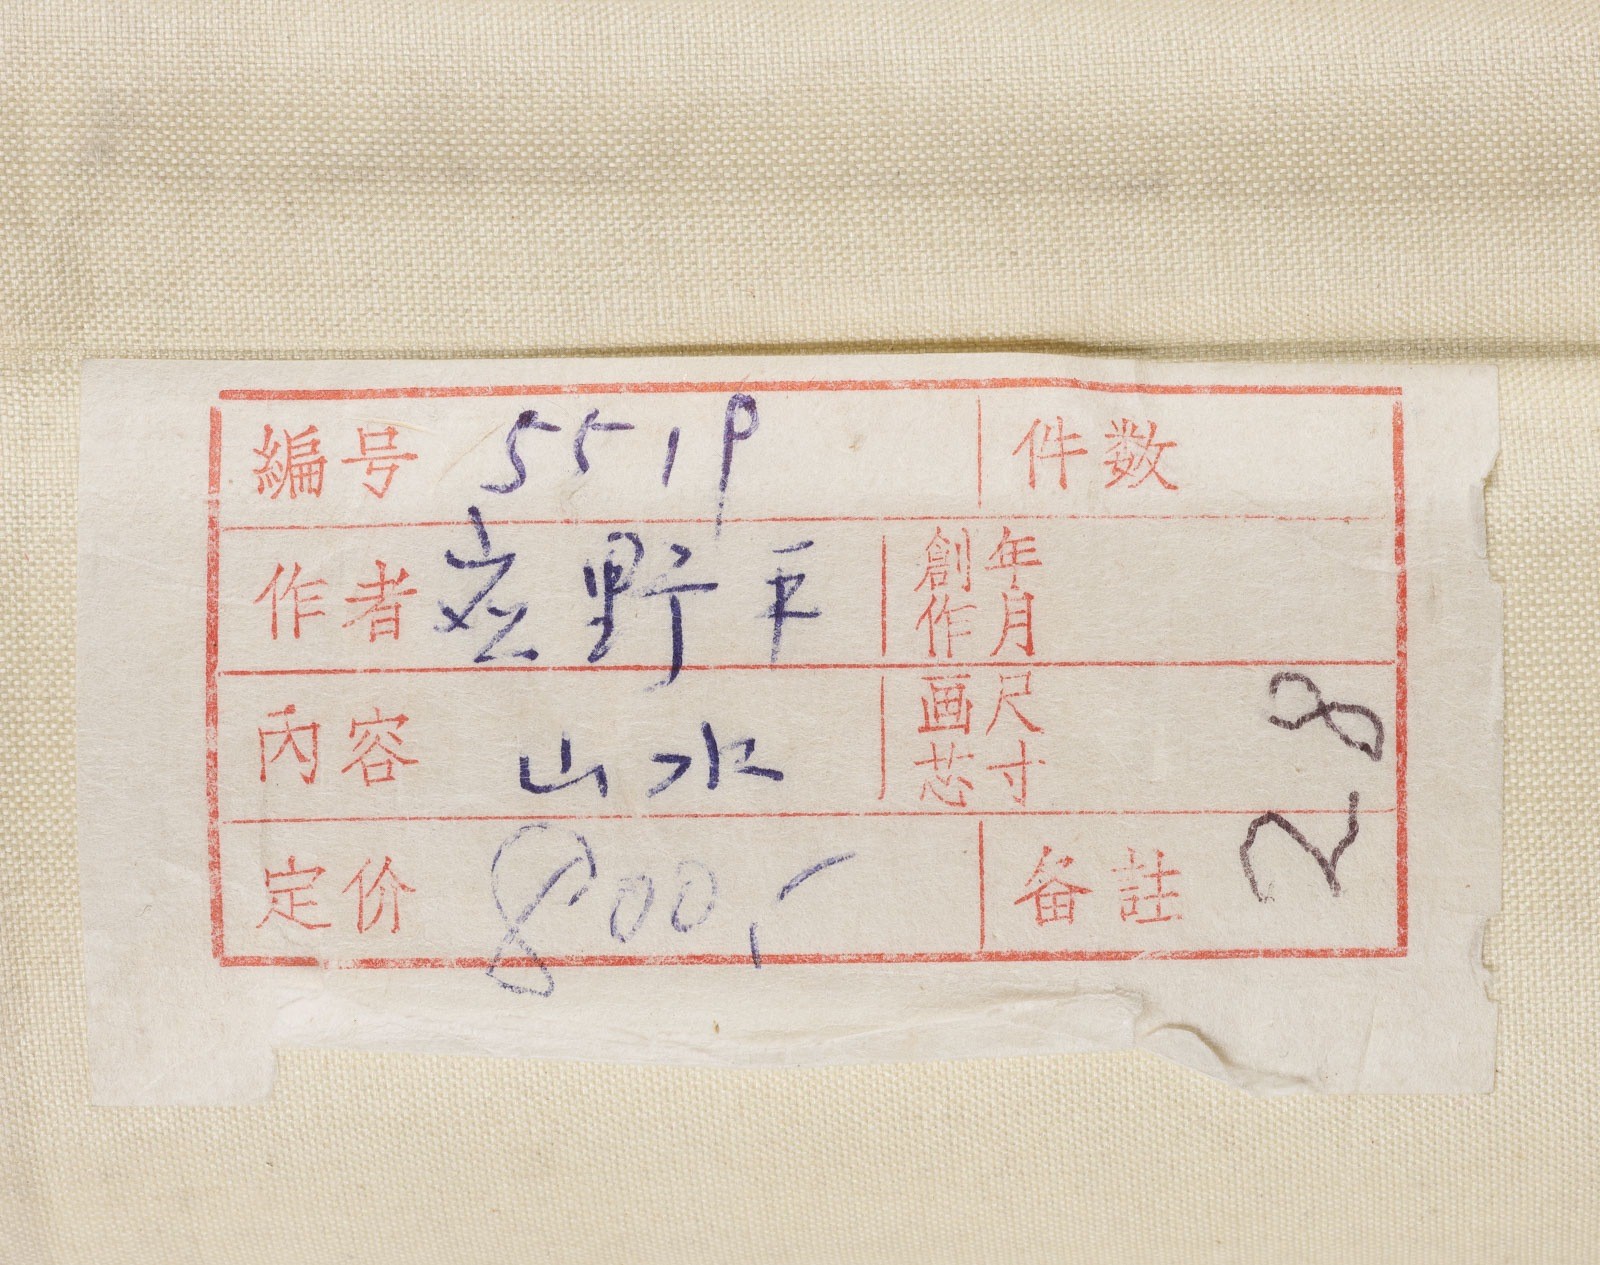 編号 5519 件数
作者 应野平 創作年月
內容 山水 画芯尺寸
定价 800,- 备註
28